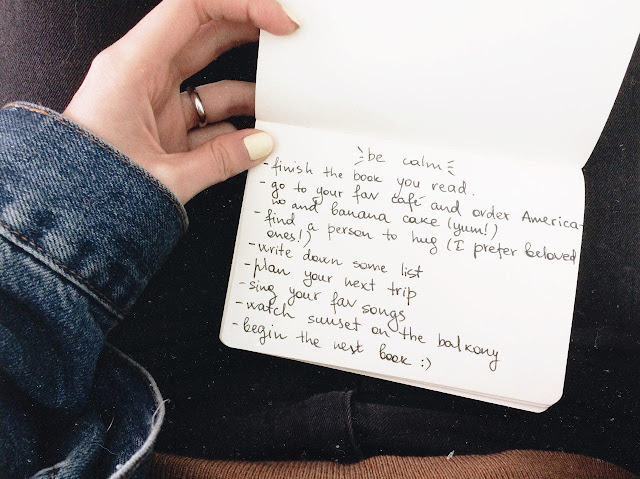 be calm
- finish the book you read.
- go to your fav café and order America-
no and banana cake (yum!)
- find a person to hug (I prefer beloved
ones!)
- write down some list
- plan your next trip
- sing your fav songs
- watch sunset on the balkony
- begin the next book :)